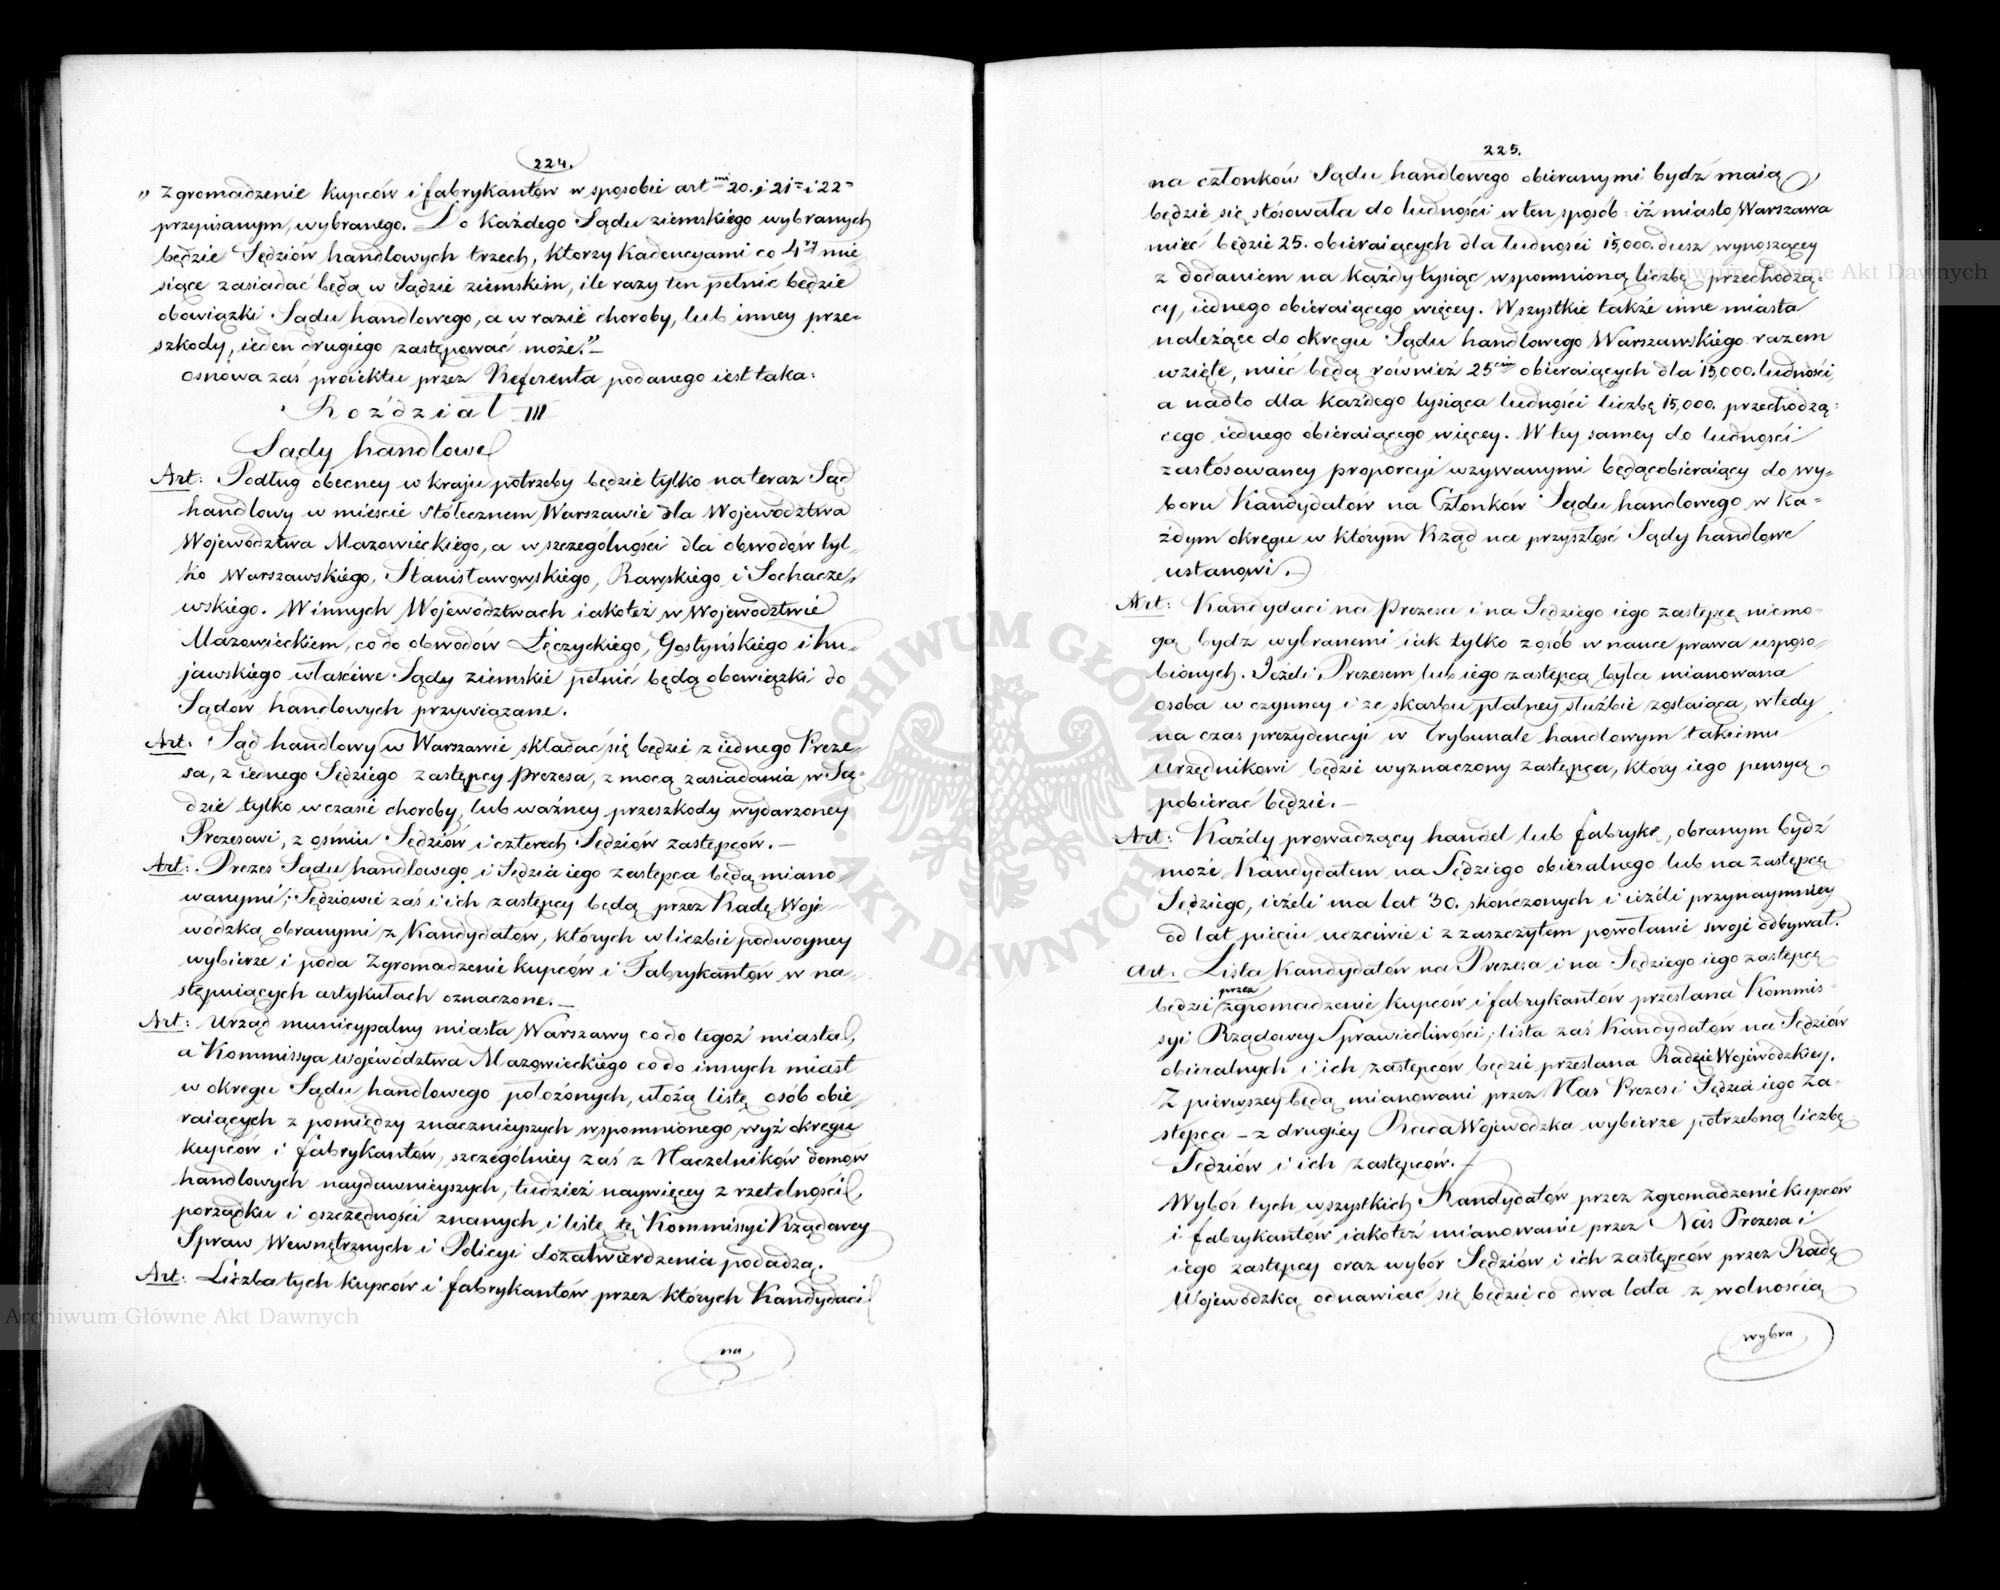 224.
„Zgromadzenie kupców i fabrykantów w sposobie art mi 20. i 21= i 22=
przepisanym, wybranego. Do każdego Sądu ziemskiego wybranych
będzie Sędziów handlowych trzech, ktorzy kadencyami co 4ry mie
siące zasiadać będą w Sądzie ziemskim, ile razy ten pełnić będzie
obowiązki Sądu handlowego, a w razie choroby, lub inney prze-
szkody, ieden drugiego zastępować może."—
osnowa zaś proiektu przez Referenta podanego iest taka:
Rozdział III
Sądy handlowe
Art: Podług obecney w kraju potrzeby będzie tylko na teraz Sąd
handlowy w mieście stółecznem Warszawie dla Województwa
Województwa Mazowieckiego, a w szczególności dla obwodów tyl-
ko Warszawskiego, Stanisławowskiego, Rawskiego i Sochacze-
wskiego. W innych Województwach iakoteż w Województwie
Mazowieckiem, co do obwodow Łęczyckiego, Gostyńskiego i ku-
jawskiego właściwe Sądy ziemskie pełnić będą obowiązki do
Sądów handlowych przywiązane.
Art: Sąd handlowy w Warszawie składać się będzie z iednego Preze-
sa, z iednego Sędziego zastępcy prezesa, z mocą zasiadania w Są-
dzie tylko w czasie choroby, lub ważney przeszkody wydarzoney
Prezesowi, z ośmiu Sędziów i czterech Sędziów zastępców.—
Art: Prezes Sądu handlowego i Sędzia iego zastępca będą miano-
wanymi; Sędziowie zaś i ich zastępcy będą przez Radę Woje-
wódzką obranymi z Kandydatów, których w liczbie podwoyney
wybierze i poda Zgromadzenie kupców i Fabrykantów w na-
stępuiących artykułach oznaczone.—
Art: Urząd municypalny miasta Warszawy co do tegoż miasta,
a Kommissya województwa Mazowieckiego co do innych miast
w okręgu Sądu handlowego położonych, ułożą listę osób obie-
raiących z pomiędzy znacznieyszych wspomnionego wyż okręgu
kupców i fabrykantów, szczególniey zaś z Naczelników domów
handlowych naydawnieyszych, tudzież naywięcey z rzetelności,
porządku i oszczędności znanych i listę tę Kommissyi Rządowey
Spraw Wewnętrznych i Policyi do zatwierdzenia podadzą.
Art: Liczba tych kupców i fabrykantów przez których Kandydaci
na
225.
na członków Sądu handlowego obieranymi bydź maią,
będzie się stósowała do ludności w ten sposób: iż miasto Warszawa
mieć będzie 25. obieraiących dla ludności 15,000. dusz wynoszącey
z dodaniem na każdy tysiąc wspomnioną liczbę przechodzą-
cy, iednego obieraiącego więcey. Wszystkie także inne miasta
należące do okręgu Sądu handlowego Warszawskiego razem
wzięte, mieć będą również 25ciu obieraiących dla 15,000. ludności,
a nadto dla każdego tysiąca ludności liczbę 15,000. przechodzą-
cego iednego obieraiącego więcey. W tey samey do ludności
zastósowaney proporcyi wzywanymi będą obieraiący do wy-
boru Kandydatów na Członków Sądu handlowego w ka-
żdym okręgu w którym Rząd na przyszłość Sądy handlowe
ustanowi.—
Art: Kandydaci na Prezesa i na Sędziego iego zastępcę niemo-
gą bydź wybranemi iak tylko z osób w nauce prawa usposo-
bionych. Jeżeli Prezesem lub iego zastępcą była mianowana
osoba w czynney i ze skarbu płatney służbie zostaiąca, wtedy
na czas prezydencyi w Trybunale handlowym takiemu
urzędnikowi będzie wyznaczony zastępca, który iego pensyą
pobierać będzie.—
Art: Każdy prowadzący handel lub fabrykę, obranym bydź
może Kandydatem na Sędziego obieralnego lub na zastępcę
Sędziego, ieżeli ma lat 30. skończonych i ieżeli przynaymniey
od lat pięciu uczciwie i z zaszczytem powołanie swoje odbywał.
Art. Lista Kandydatów na Prezesa i na Sędziego iego zastępcę
będzie przez zgromadzenie kupców i fabrykantów przesłana Kommis-
syi Rządowey Sprawiedliwości; lista zaś Kandydatów na Sędziów
obieralnych i ich zastępców będzie przesłana Radzie Wojewódzkiey.
Z pierwszey będą mianowani przez Nas Prezes i Sędzia iego Za-
stępca – z drugiéy Rada Wojewódzka wybierze potrzebną liczbę
Sędziów i ich zastępców.—
Wybór tych wszystkich Kandydatów przez Zgromadzenie kupców
i fabrykantów iakoteż mianowanie przez Nas Prezesa i
iego zastępcy oraz wybór Sędziów i ich zastępców przez Radę
Wojewódzką odnawiać się będzie co dwa lata z wolnością
wybra
Archiwum Główne Akt Dawnych
Archiwum Główne Akt Dawnych
ARCHIWUM GŁÓWNE
AKT DAWNYCH